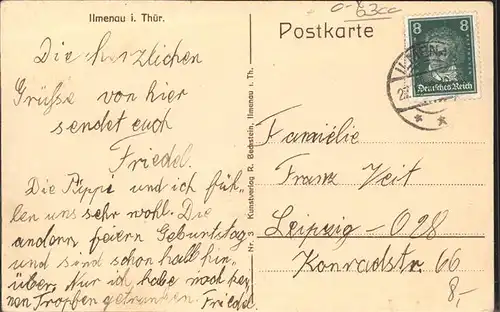 Ilmenau i. Thür.
Die herzlichen
Grüsse von hier
sendet euch
Friedel.
Die Peppi und ich füh-
len uns sehr wohl. Die
andern feiern Geburtstag
und sind schon halb hin-
über. Nur ich habe noch kei-
nen Tropfen getrunken. Friedel
Nr. 5 Kunstverlag R. Bechstein, Ilmenau i. Th.
Postkarte
63cc
8 8
Deutsches Reich
Familie
Franz Veit
Leipzig - O 28
Konradstr. 66
8,-